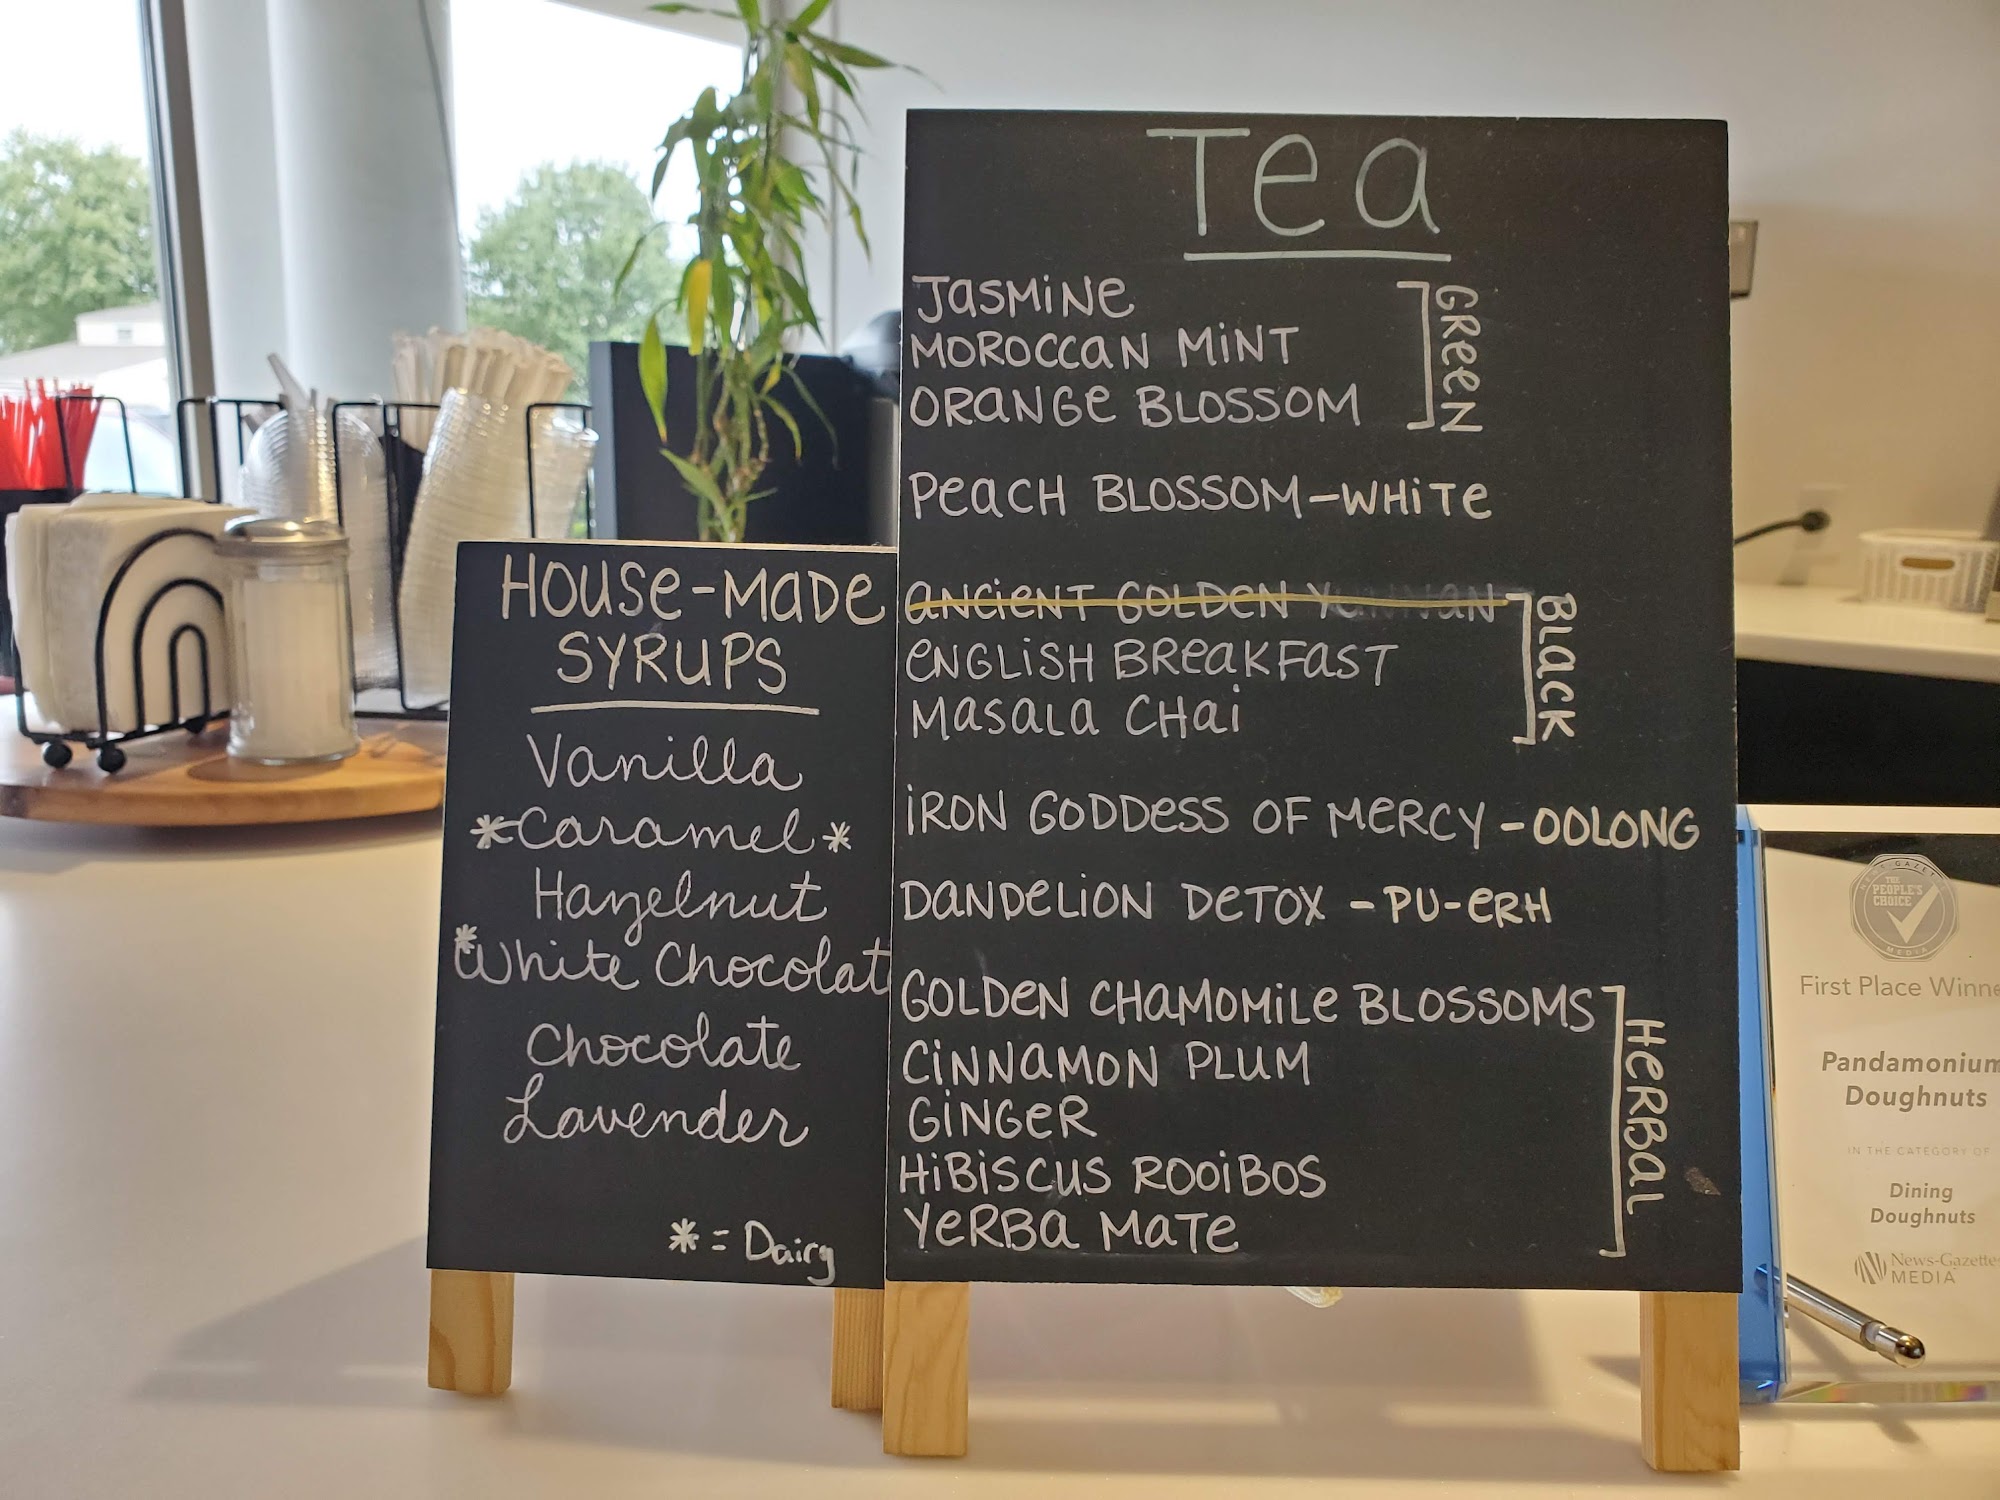 Tea
Jasmine
Moroccan Mint
Orange Blossom
Green
Peach Blossom - White
Ancient Golden Yunnan
English Breakfast
Masala Chai
Black
Iron Goddess of Mercy - Oolong
Dandelion Detox - Pu-erh
Golden Chamomile Blossoms
Cinnamon Plum
Ginger
Hibiscus Rooibos
Yerba Mate
Herbal
House-Made
Syrups
Vanilla
*Caramel*
Hazelnut
*White Chocolat
Chocolate
Lavender
* = Dairy
THE
PEOPLE'S
CHOICE
MEDIA
First Place Winne
Pandamonium
Doughnuts
IN THE CATEGORY OF
Dining
Doughnuts
News-Gazette
MEDIA